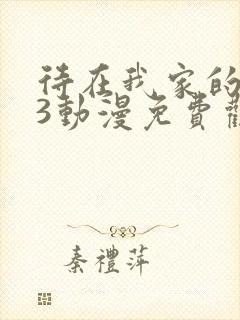 待在我家的
3動漫免費
秦禮萍